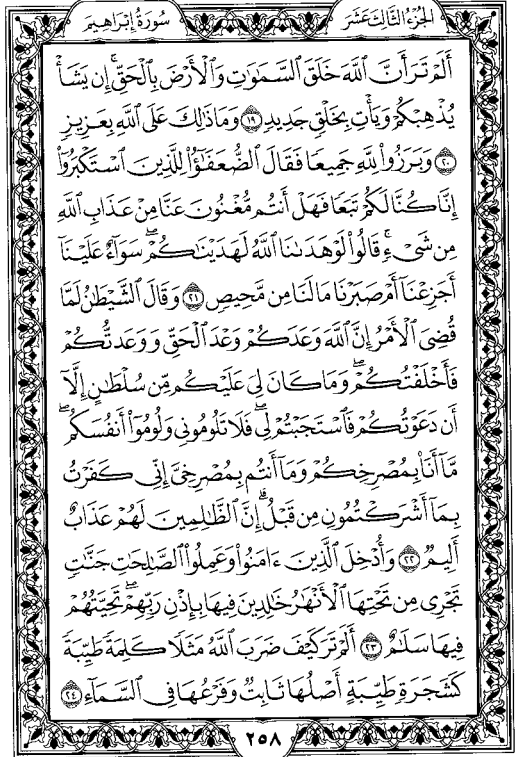 الجزء الثالث عشر
سورة إبراهيم
أَلَمْ تَرَ أَنَّ ٱللَّهَ خَلَقَ ٱلسَّمَٰوَٰتِ وَٱلْأَرْضَ بِٱلْحَقِّۚ إِن يَشَأْ
يُذْهِبْكُمْ وَيَأْتِ بِخَلْقٍ جَدِيدٍ ١٩ وَمَا ذَٰلِكَ عَلَى ٱللَّهِ بِعَزِيزٍ
٢٠ وَبَرَزُوا۟ لِلَّهِ جَمِيعًا فَقَالَ ٱلضُّعَفَٰٓؤُا۟ لِلَّذِينَ ٱسْتَكْبَرُوٓا۟
إِنَّا كُنَّا لَكُمْ تَبَعًا فَهَلْ أَنتُم مُّغْنُونَ عَنَّا مِنْ عَذَابِ ٱللَّهِ
مِن شَىْءٍۚ قَالُوا۟ لَوْ هَدَىٰنَا ٱللَّهُ لَهَدَيْنَٰكُمْۖ سَوَآءٌ عَلَيْنَآ
أَجَزِعْنَآ أَمْ صَبَرْنَا مَا لَنَا مِن مَّحِيصٍ ٢١ وَقَالَ ٱلشَّيْطَٰنُ لَمَّا
قُضِىَ ٱلْأَمْرُ إِنَّ ٱللَّهَ وَعَدَكُمْ وَعْدَ ٱلْحَقِّ وَوَعَدتُّكُمْ
فَأَخْلَفْتُكُمْۖ وَمَا كَانَ لِىَ عَلَيْكُم مِّن سُلْطَٰنٍ إِلَّآ
أَن دَعَوْتُكُمْ فَٱسْتَجَبْتُمْ لِىۖ فَلَا تَلُومُونِى وَلُومُوٓا۟ أَنفُسَكُمۖ
مَّآ أَنَا۠ بِمُصْرِخِكُمْ وَمَآ أَنتُم بِمُصْرِخِىَّۖ إِنِّى كَفَرْتُ
بِمَآ أَشْرَكْتُمُونِ مِن قَبْلُۗ إِنَّ ٱلظَّٰلِمِينَ لَهُمْ عَذَابٌ
أَلِيمٌ ٢٢ وَأُدْخِلَ ٱلَّذِينَ ءَامَنُوا۟ وَعَمِلُوا۟ ٱلصَّٰلِحَٰتِ جَنَّٰتٍ
تَجْرِى مِن تَحْتِهَا ٱلْأَنْهَٰرُ خَٰلِدِينَ فِيهَا بِإِذْنِ رَبِّهِمْۖ تَحِيَّتُهُمْ
فِيهَا سَلَٰمٌ ٢٣ أَلَمْ تَرَ كَيْفَ ضَرَبَ ٱللَّهُ مَثَلًا كَلِمَةً طَيِّبَةً
كَشَجَرَةٍ طَيِّبَةٍ أَصْلُهَا ثَابِتٌ وَفَرْعُهَا فِى ٱلسَّمَآءِ ٢٤
٢٥٨